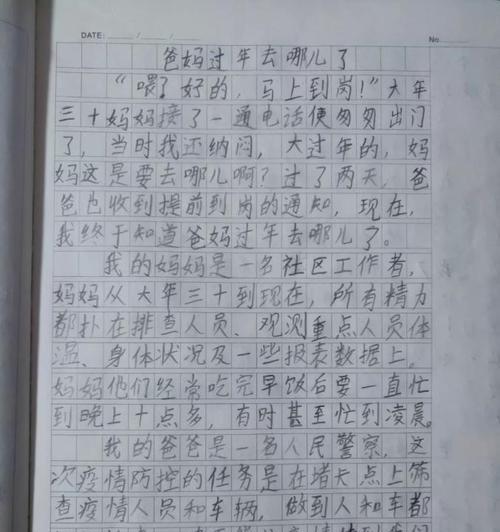 DATE: / /
No
爸妈过年去哪儿了
“喂?好的,马上到岗!”大年
三十妈妈接了一通电话便匆匆出门
了,当时我还纳闷,大过年的,妈
妈这是要去哪儿啊?过了两天,爸
爸也收到提前到岗的通知,现在,
我终于知道爸妈过年去哪儿了。
我的妈妈是一名社区工作者,
妈妈从大年三十到现在,所有精力
都扑在排查人员、观测重点人员体
温、身体状况及一些报表数据上。
妈妈他们经常吃完早饭后要一直忙
到晚上十点多,有时甚至忙到凌晨。
我的爸爸是一名人民警察,这
次疫情防控的任务是在堵卡点上筛
查疫情人员和车辆,做到人和车都